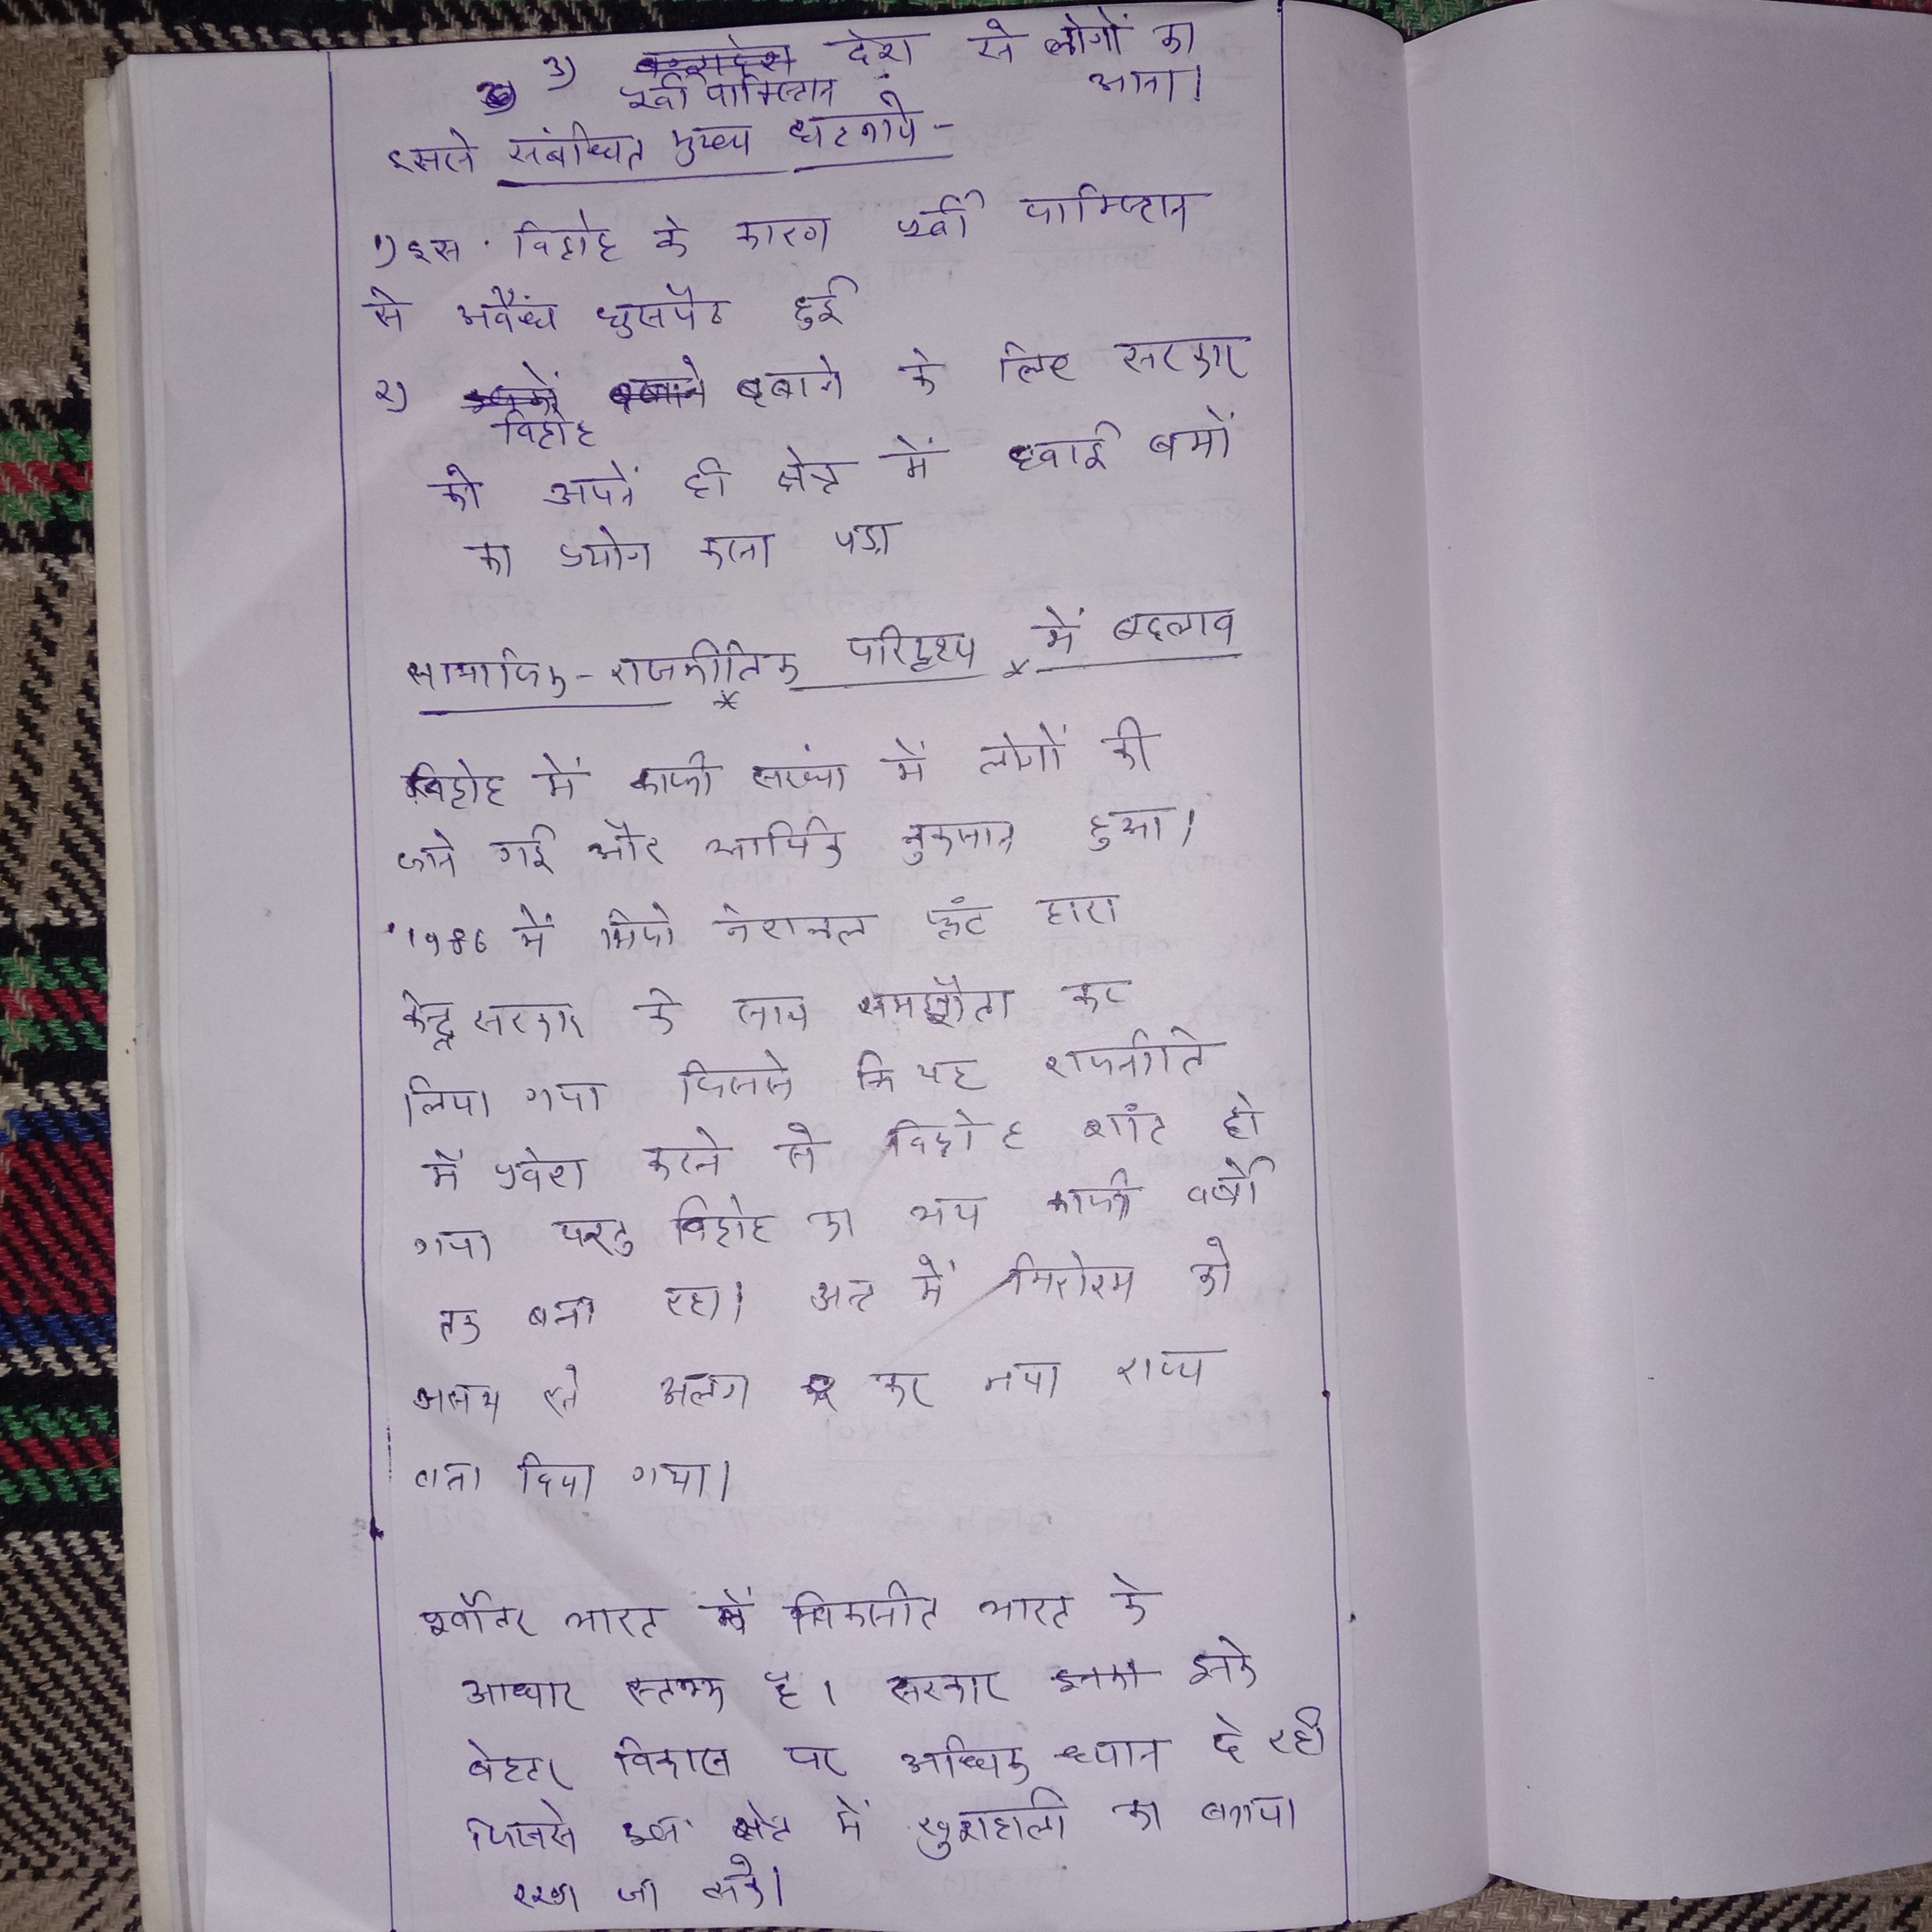 3) देश से लोगों का
पूर्वी पाकिस्तान आना।
इससे संबंधित मुख्य घटनाये -
1) इस विद्रोह के कारण पूर्वी पाकिस्तान
से अवैध घुसपैठ हुई
2) दबाने के लिए सरकार
विद्रोह
को अपने ही क्षेत्र में हवाई बमों
का प्रयोग करना पड़ा
सामाजिक - राजनीतिक परिदृश्य में बदलाव
विद्रोह में काफी संख्या में लोगों की
जाने गई और आर्थिक नुकसान हुआ।
1986 में मिजो नेशनल फ्रंट द्वारा
केन्द्र सरकार के साथ समझौता कर
लिया गया जिससे कि यह राजनीति
में प्रवेश करने से विद्रोह शांत हो
गया परन्तु विद्रोह का भय काफी वर्षों
तक बना रहा। अन्त में मिजोरम को
असम से अलग कर नया राज्य
बना दिया गया।
पूर्वोत्तर भारत विकसीत भारत के
आधार स्तम्भ है। सरकार इनके
बेहतर विकास पर अधिक ध्यान दे रही
जिससे इस क्षेत्र में खुशहाली का बनाया
रखा जा सके।